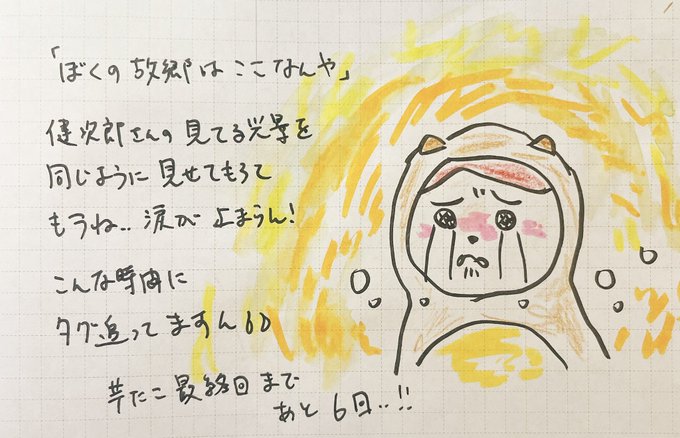 「ぼくの故郷は ここなんや」
健次郎さんの 見てる光景を
同じように 見せてもろて
もうね‥ 涙が 止まらん!
こんな時間に
タグ追ってますん60
芋たこ最終回まで
あと 6日‥!!